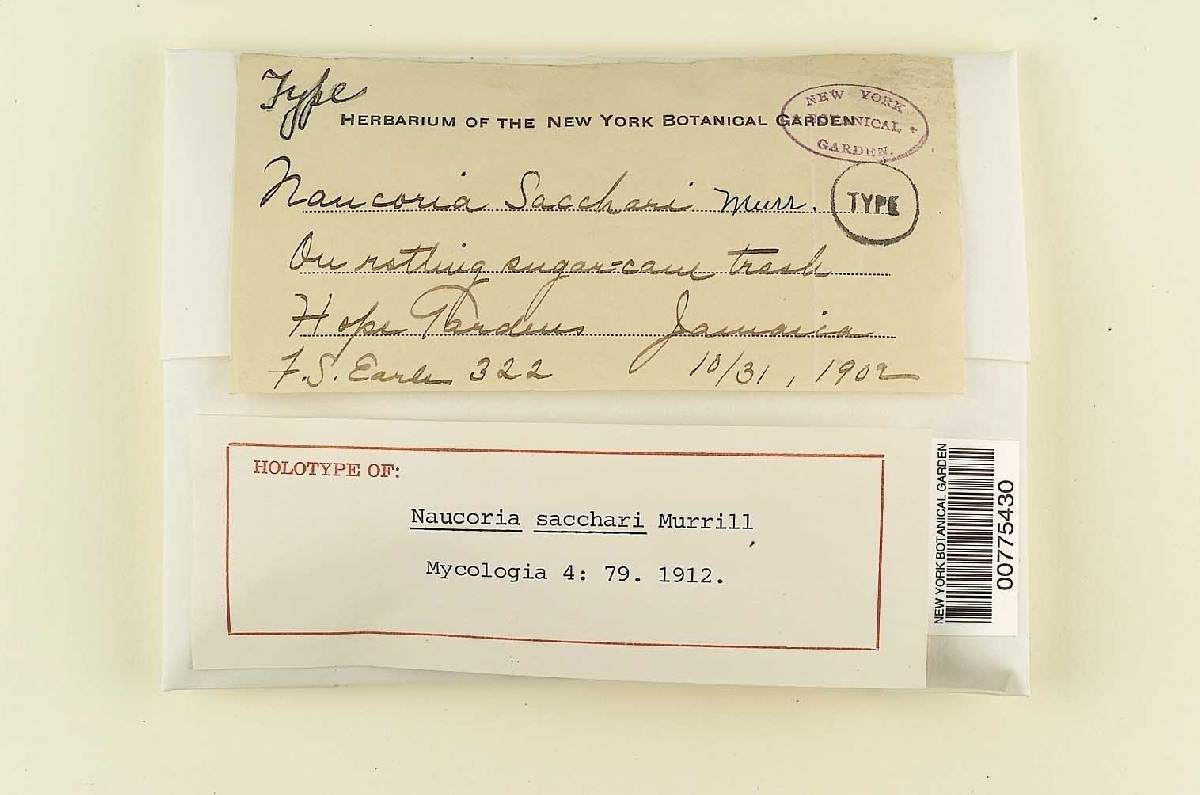 Type
HERBARIUM OF THE NEW YORK BOTANICAL GARDEN
NEW YORK
BOTANICAL
GARDEN.
Naucoria Sacchari Murr.
TYPE
On rotting sugar-cane trash
Hope Gardens Jamaica
F.S. Earle 322 10/31, 1902
HOLOTYPE OF:
Naucoria sacchari Murrill
Mycologia 4: 79. 1912.
NEW YORK BOTANICAL GARDEN
00775430